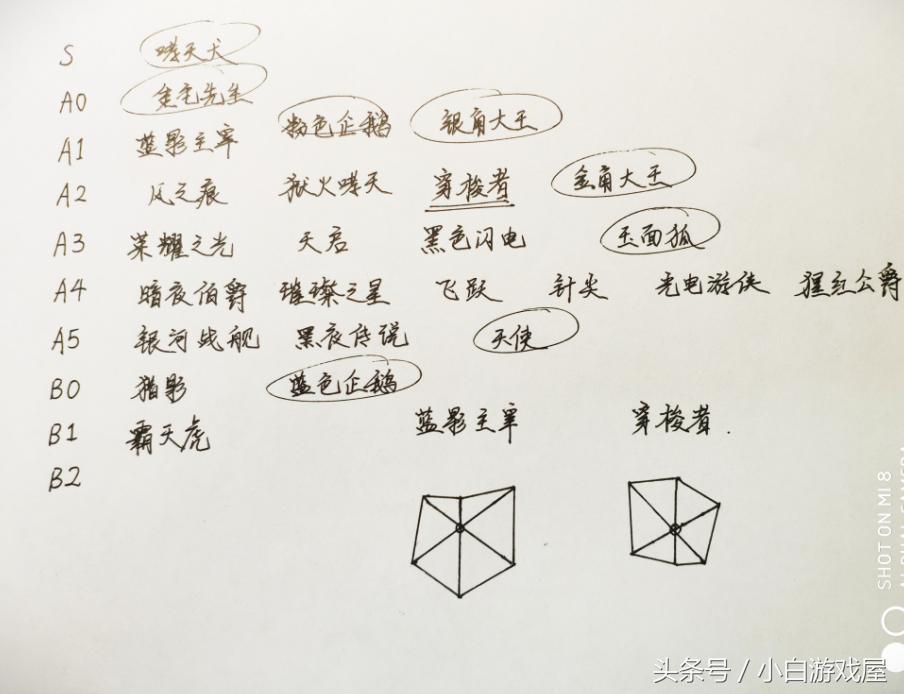 S 哮天犬
A0 金毛先生
A1 蓝影主宰 粉色企鹅 银角大王
A2 风之痕 狱火哮天 穿梭者 金角大王
A3 荣耀之光 天启 黑色闪电 玉面狐
A4 暗夜伯爵 璀璨之星 飞跃 针尖 光电游侠 猩红公爵
A5 银河战舰 黑夜传说 天使
B0 猎影 蓝色企鹅
B1 霸天虎
蓝影主宰 穿梭者.
B2
SHOT ON MI 8
头条号 / 小白游戏屋